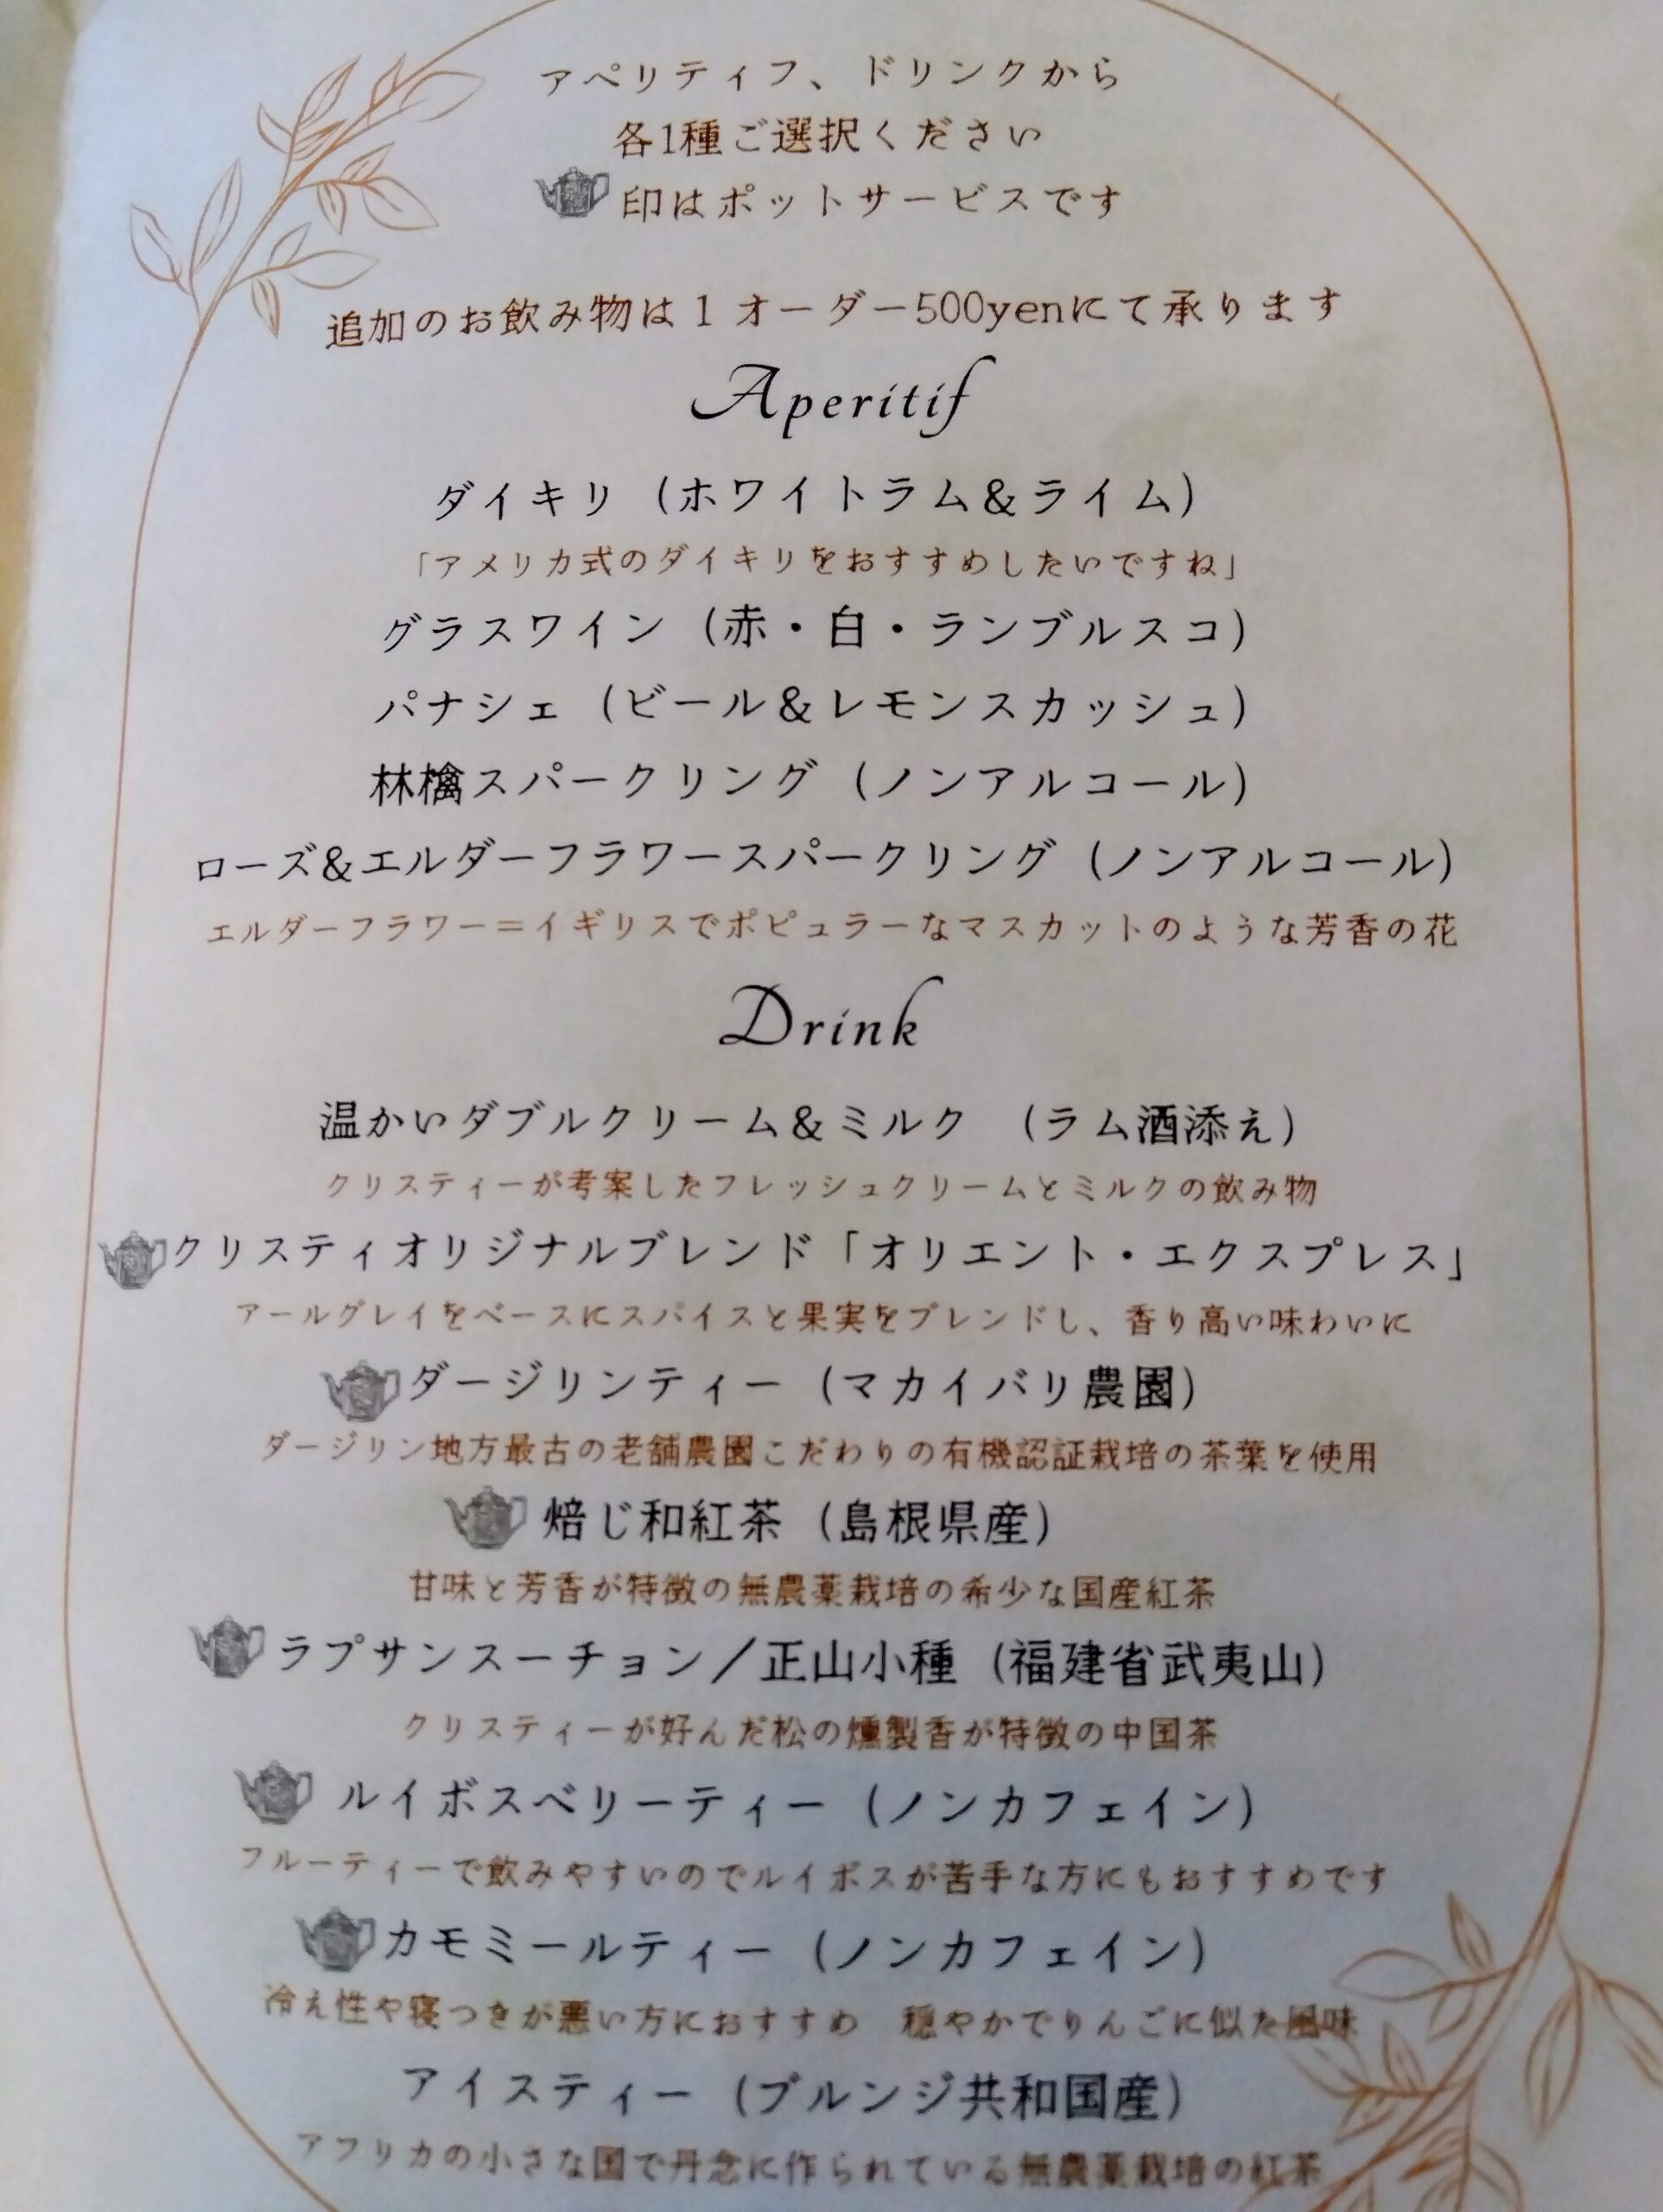 アペリティフ、ドリンクから
各1種ご選択ください
印はポットサービスです
追加のお飲み物は1 オーダー500yenにて承ります
Aperitif
ダイキリ（ホワイトラム&ライム）
「アメリカ式のダイキリをおすすめしたいですね」
グラスワイン（赤・白・ランブルスコ）
パナシェ（ビール&レモンスカッシュ）
林檎スパークリング（ノンアルコール）
ローズ&エルダーフラワースパークリング（ノンアルコール）
エルダーフラワー＝イギリスでポピュラーなマスカットのような芳香の花
Drink
温かいダブルクリーム&ミルク （ラム酒添え）
クリスティーが考案したフレッシュクリームとミルクの飲み物
クリスティオリジナルブレンド「オリエント・エクスプレス」
アールグレイをベースにスパイスと果実をブレンドし、香り高い味わいに
ダージリンティー（マカイバリ農園）
ダージリン地方最古の老舗農園こだわりの有機認証栽培の茶葉を使用
焙じ和紅茶（島根県産）
甘味と芳香が特徴の無農薬栽培の希少な国産紅茶
ラプサンスーチョン／正山小種（福建省武夷山）
クリスティーが好んだ松の燻製香が特徴の中国茶
ルイボスベリーティー（ノンカフェイン）
フルーティーで飲みやすいのでルイボスが苦手な方にもおすすめです
カモミールティー（ノンカフェイン）
冷え性や寝つきが悪い方におすすめ 穏やかでりんごに似た風味
アイスティー（ブルンジ共和国産）
アフリカの小さな国で丹念に作られている無農薬栽培の紅茶